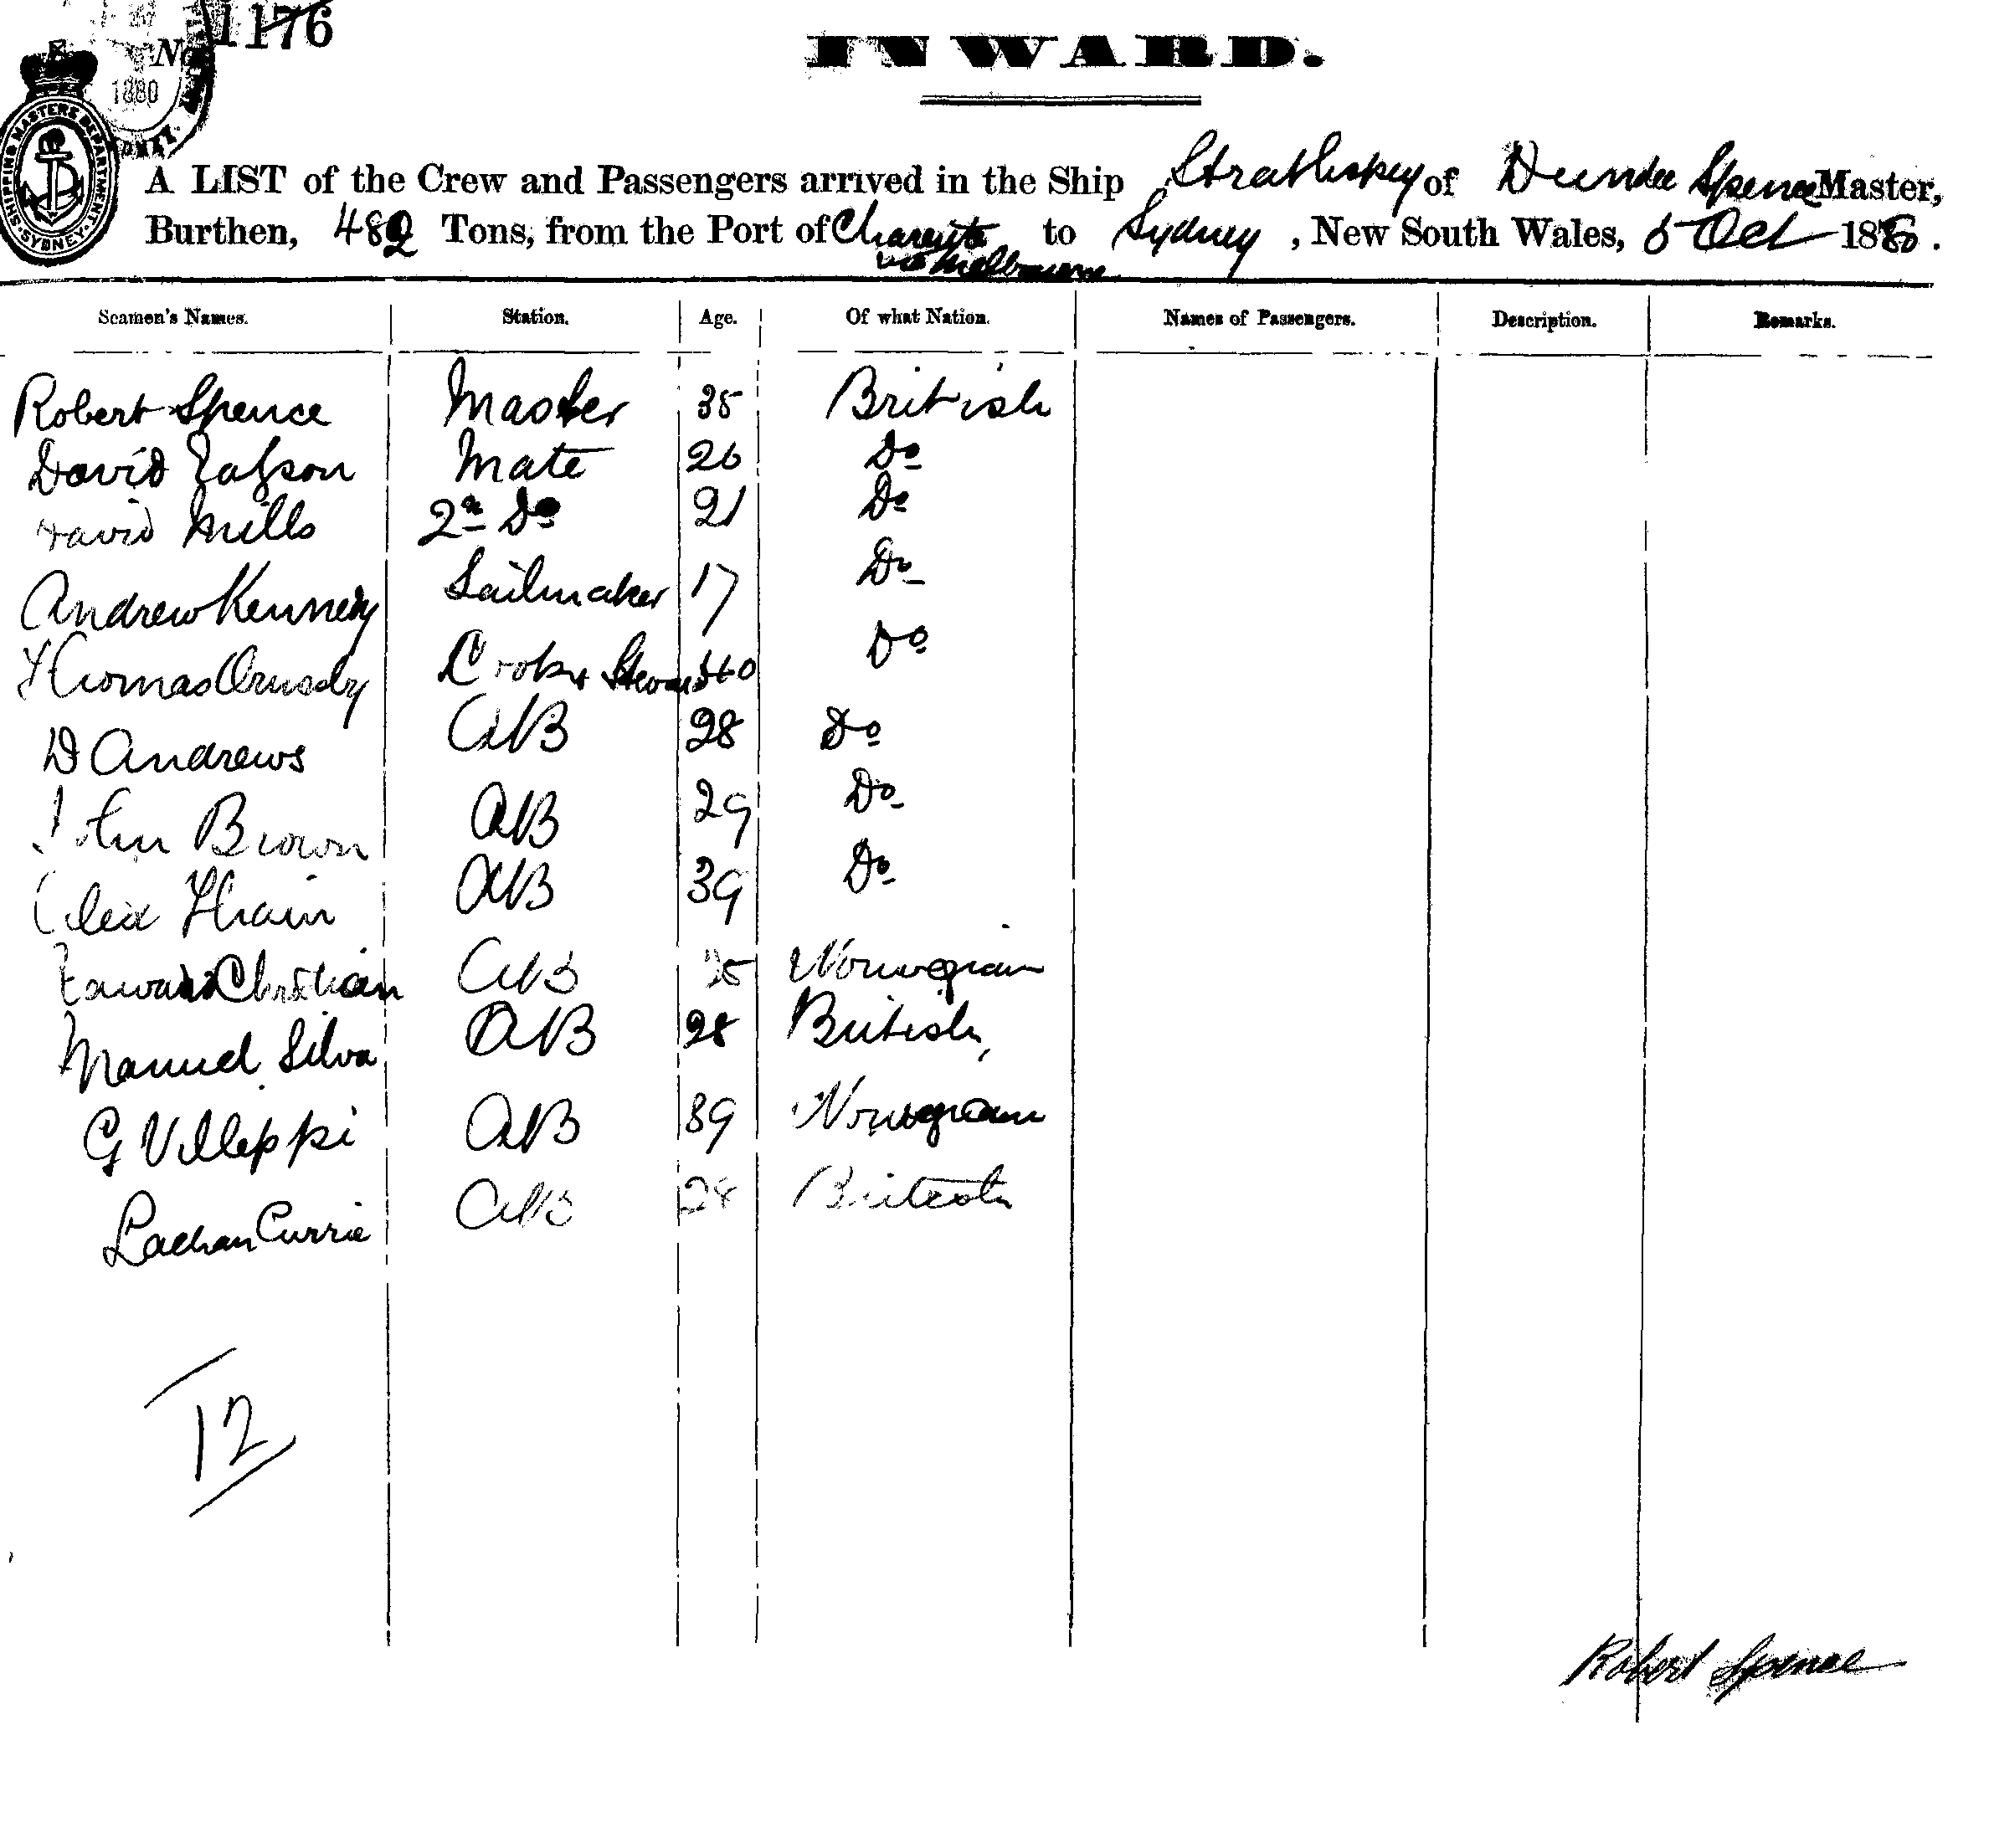 No 1176
1880
SHIPPING MASTERS DEPARTMENT
SYDNEY
INWARD.
A LIST of the Crew and Passengers arrived in the Ship Strathspey of Dundee Spence Master,
Burthen, 482 Tons, from the Port of to Sydney, New South Wales, 5 Oct 1880.
via Melbourne
Seamen's Names. Station. Age. Of what Nation. Names of Passengers. Description. Remarks.
Robert Spence Master 35 British
David Mate 26 Do
David Mills 2nd Do 21 Do
Andrew Kennedy Sailmaker 17 Do
Thomas Cook & Steward 40 Do
D Andrews AB 28 Do
John Brown AB 29 Do
Alex Thain AB 39 Do
Edward Christian AB 25 Norwegian
Manuel Silva AB 28 British
G AB 39 Norwegian
Lachan Currie AB 28 British
12
Robert Spence